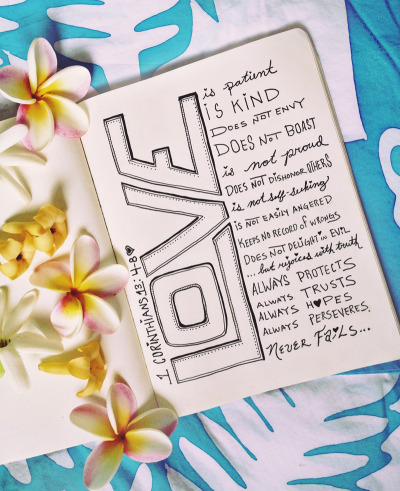 1 CORINTHIANS 13:4-8
LOVE
is patient
is KIND
Does NOT ENVY
Does NOT BOAST
is not proud
Does NOT DISHONOR OTHERS
is not self-seeking
is NOT EASILY ANGERED
KEEPS NO RECORD OF WRONGS
DOES NOT DELIGHT iN EViL
...but rejoices with truth
ALWAYS PROTECTS
ALWAYS TRUSTS
ALWAYS HOPES
ALWAYS PERSEVERES.
NEVER FAiLS...